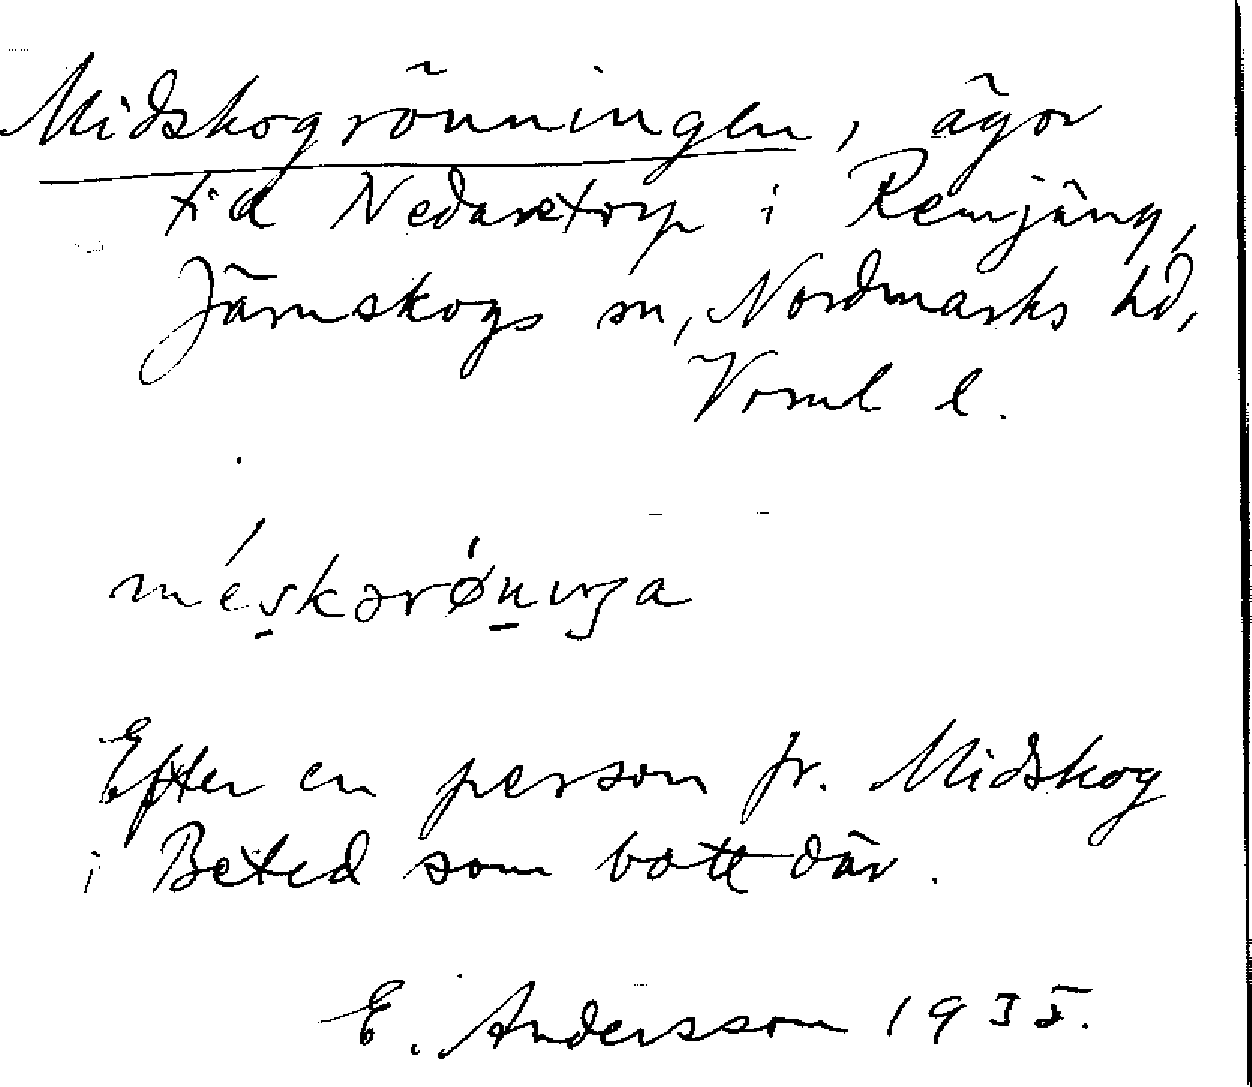 Midskogrönningen, ägor
till Nedarstorp i Remjäng,
Järnskogs sn, Nordmarks hd,
Vrml l.
méskərǿnıŋa
Efter en person fr. Midskog
i Beted som bott där.
E. Andersson 1935.